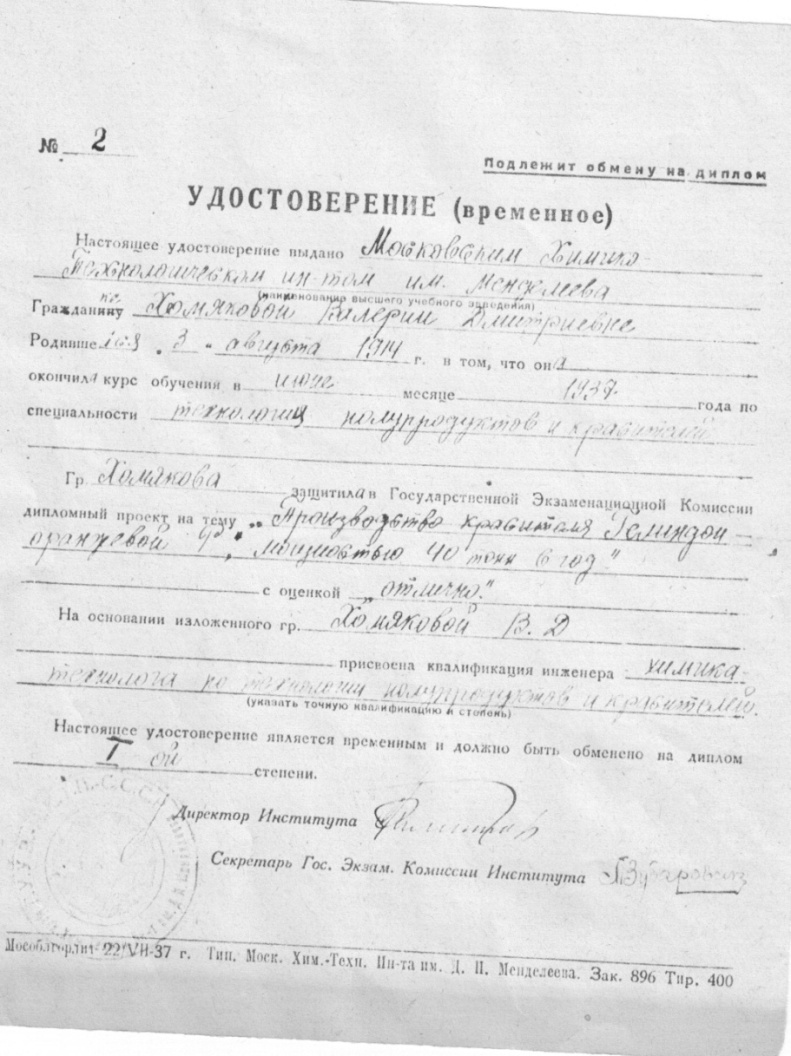 № 2
Подлежит обмену на диплом
УДОСТОВЕРЕНИЕ (временное)
Настоящее удостоверение выдано Московским Химико-
Технологическим ин-том им. Менделеева
(наименование высшего учебного заведения)
Гражданинуке Хомяковой Валерии Дмитриевне
Родившейся „3“ августа 1914 г. в том, что она
окончила курс обучения в июне месяце 1937 года по
специальности технология полупродуктов и красителей
Гр. Хомякова защитила в Государственной Экзаменационной Комиссии
дипломный проект на тему „Производство красителя Гелиндон
оранжевой мощностью 40 тонн в год"
с оценкой „отлично."
На основании изложенного гр. Хомяковой В. Д
присвоена квалификация инженера химика-
технолога по технологии полупродуктов и красителей.
(указать точную квалификацию и степень)
Настоящее удостоверение является временным и должно быть обменено на диплом
I-ой степени.
Директор Института
Секретарь Гос. Экзам. Комиссии Института
Мособлгорлит 22/VII-37 г. Тип. Моск. Хим.-Техн. Ин-та им. Д. И. Менделеева. Зак. 896 Тир. 400